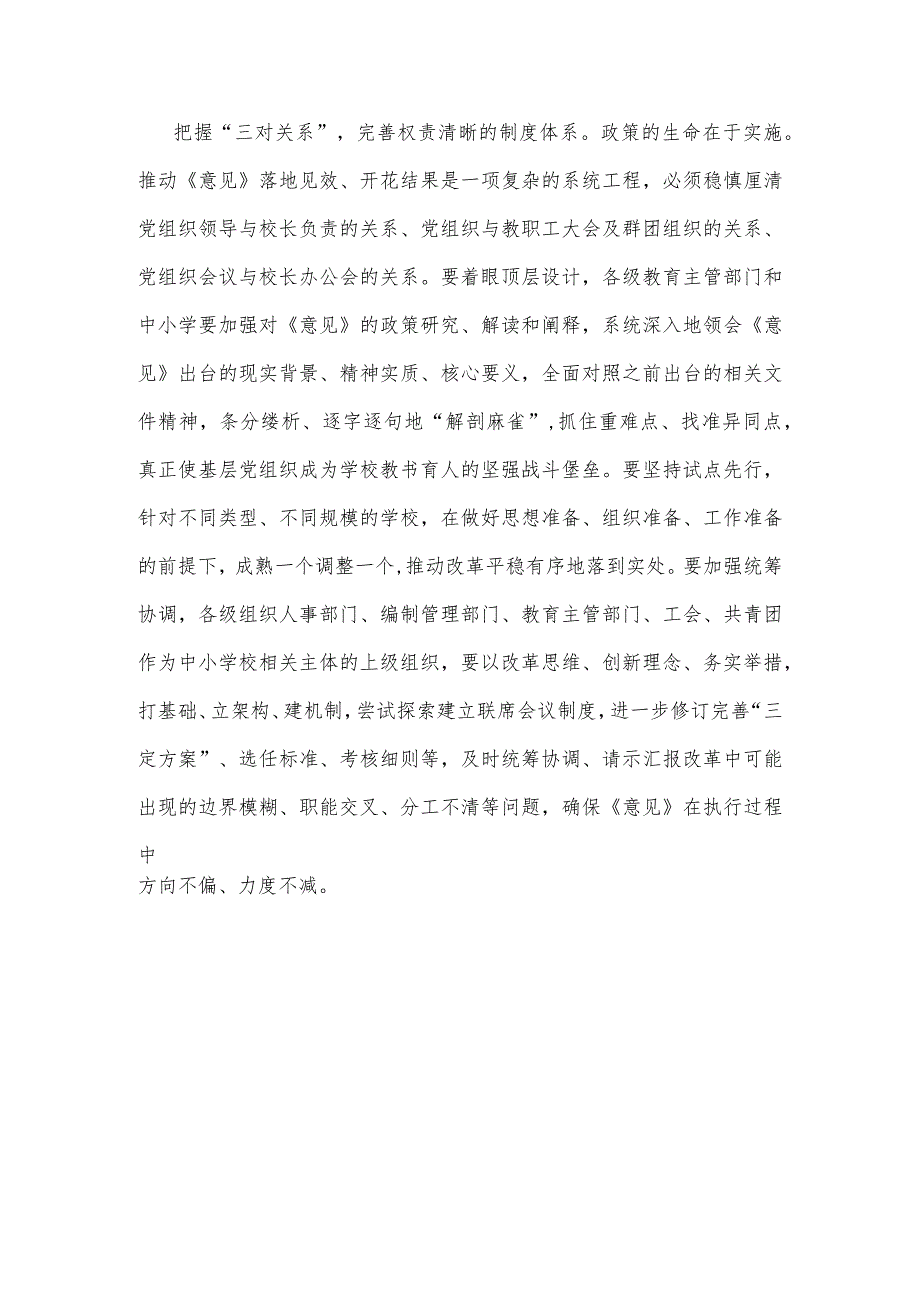 把握“三对关系”，完善权责清晰的制度体系。政策的生命在于实施。
推动《意见》落地见效、开花结果是一项复杂的系统工程，必须稳慎厘清
党组织领导与校长负责的关系、党组织与教职工大会及群团组织的关系、
党组织会议与校长办公会的关系。要着眼顶层设计，各级教育主管部门和
中小学要加强对《意见》的政策研究、解读和阐释，系统深入地领会《意
见》出台的现实背景、精神实质、核心要义，全面对照之前出台的相关文
件精神，条分缕析、逐字逐句地“解剖麻雀”,抓住重难点、找准异同点，
真正使基层党组织成为学校教书育人的坚强战斗堡垒。要坚持试点先行，
针对不同类型、不同规模的学校，在做好思想准备、组织准备、工作准备
的前提下，成熟一个调整一个,推动改革平稳有序地落到实处。要加强统筹
协调，各级组织人事部门、编制管理部门、教育主管部门、工会、共青团
作为中小学校相关主体的上级组织，要以改革思维、创新理念、务实举措，
打基础、立架构、建机制，尝试探索建立联席会议制度，进一步修订完善“三
定方案”、选任标准、考核细则等，及时统筹协调、请示汇报改革中可能
出现的边界模糊、职能交叉、分工不清等问题，确保《意见》在执行过程
中
方向不偏、力度不减。